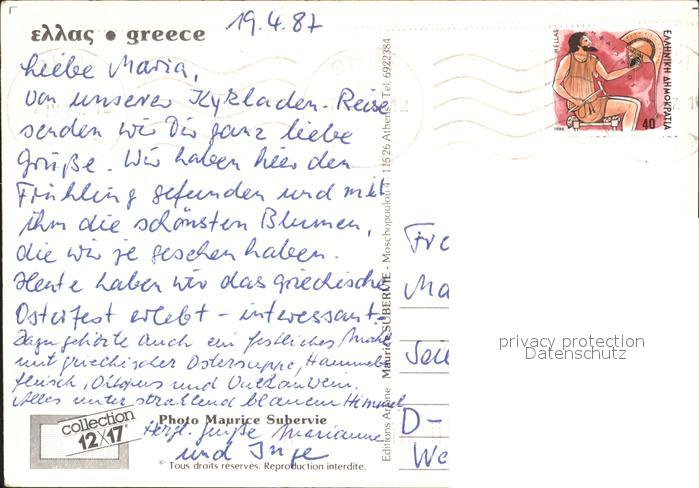 19.4.87
ελλας • greece
Liebe Maria,
von unserer Kykladen-Reise
senden wir Dir ganz liebe
Grüße. Wir haben hier den
Frühling gefunden und mit
ihm die schönsten Blumen,
die wir je gesehen haben.
Heute haben wir das griechische
Osterfest erlebt – interessant.
Dazu gehörte auch ein festliches Mahl
mit griechischer Ostersuppe, Hammel-
fleisch, Oktopus und
Alles unter strahlend blauem Himmel
Herzl. Grüße Marianne
und Inge
collection
12x17
Photo Maurice Subervie
© Tous droits réservés. Reproduction interdite.
Editions Ariane - Maurice SUBERVIE - Moschopoulou 4 - 11526 Athens - Tel. 6922384
HELLAS
ΕΛΛΗΝΙΚΗ ΔΗΜΟΚΡΑΤΙΑ
1986
40
Fr
Ma
D-
We
privacy protection
Datenschutz